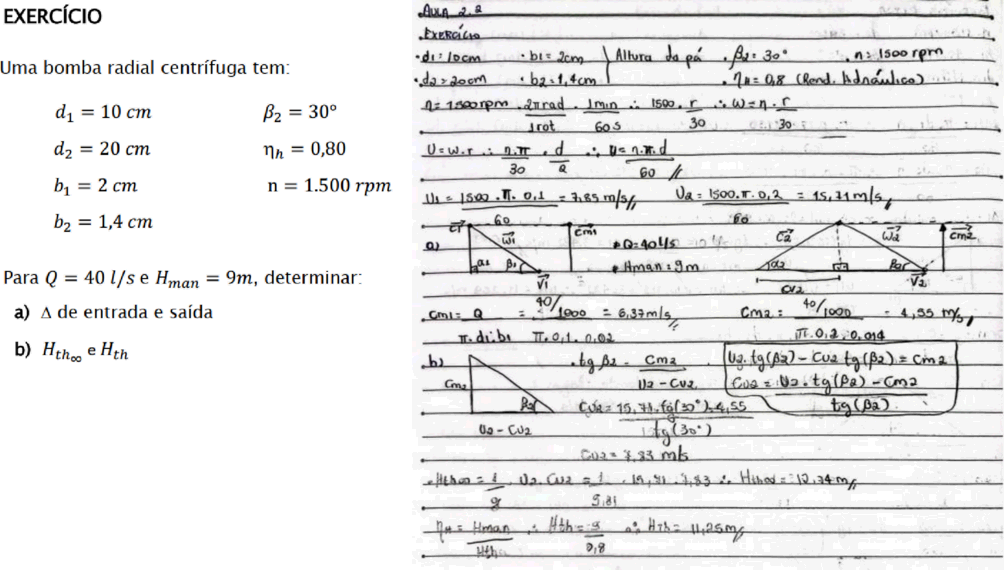 EXERCÍCIO
Uma bomba radial centrífuga tem:
d₁ = 10 cm
β₂ = 30°
d₂ = 20 cm
ηₕ = 0,80
b₁ = 2 cm
n = 1.500 rpm
b₂ = 1,4 cm
Para Q = 40 l/s e Hman = 9m, determinar:
a) Δ de entrada e saída
b) Hth∞ e Hth
AULA 2.2
EXERCÍCIO
• d1 = 10cm • b1 = 2cm } Altura da pá • β2 = 30° • n = 1500 rpm
• d2 = 20cm • b2 = 1,4cm • ηH = 0,8 (Rend. hidráulico)
n = 1500rpm . 2π rad / 1rot . 1min / 60s ∴ 1500 . r / 30 ∴ ω = n . r / 30
U = ω.r ∴ n.π / 30 . d / 2 ∴ U = n.π.d / 60
U1 = 1500 . π . 0,1 / 60 = 7,85 m/s U2 = 1500.π.0,2 / 60 = 15,71 m/s
a) C1 W1 Cm1 α1 β1 V1 • Q = 40 l/s C2 W2 Cm2 α2 β2 V2 CU2
• Hman = 9m
Cm1 = Q / π.d1.b1 = 40/1000 / π.0,1.0,02 = 6,37m/s Cm2 = 40/1000 / π.0,2.0,014 = 4,55 m/s
b) Cm2 β2 U2 - CU2 • tg β2 = Cm2 / U2 - CU2
U2.tg(β2) - CU2 tg(β2) = Cm2
CU2 = U2 . tg(β2) - Cm2 / tg(β2)
CU2 = 15,71.tg(30°)-4,55 / tg(30°)
CU2 = 7,83 m/s
• Hth∞ = 1 / g . U2. CU2 = 1 / 9,81 . 15,71 . 7,83 ∴ Hth∞ = 12,34 m
ηH = Hman / Hth ∴ Hth = 9 / 0,8 ∴ Hth = 11,25m